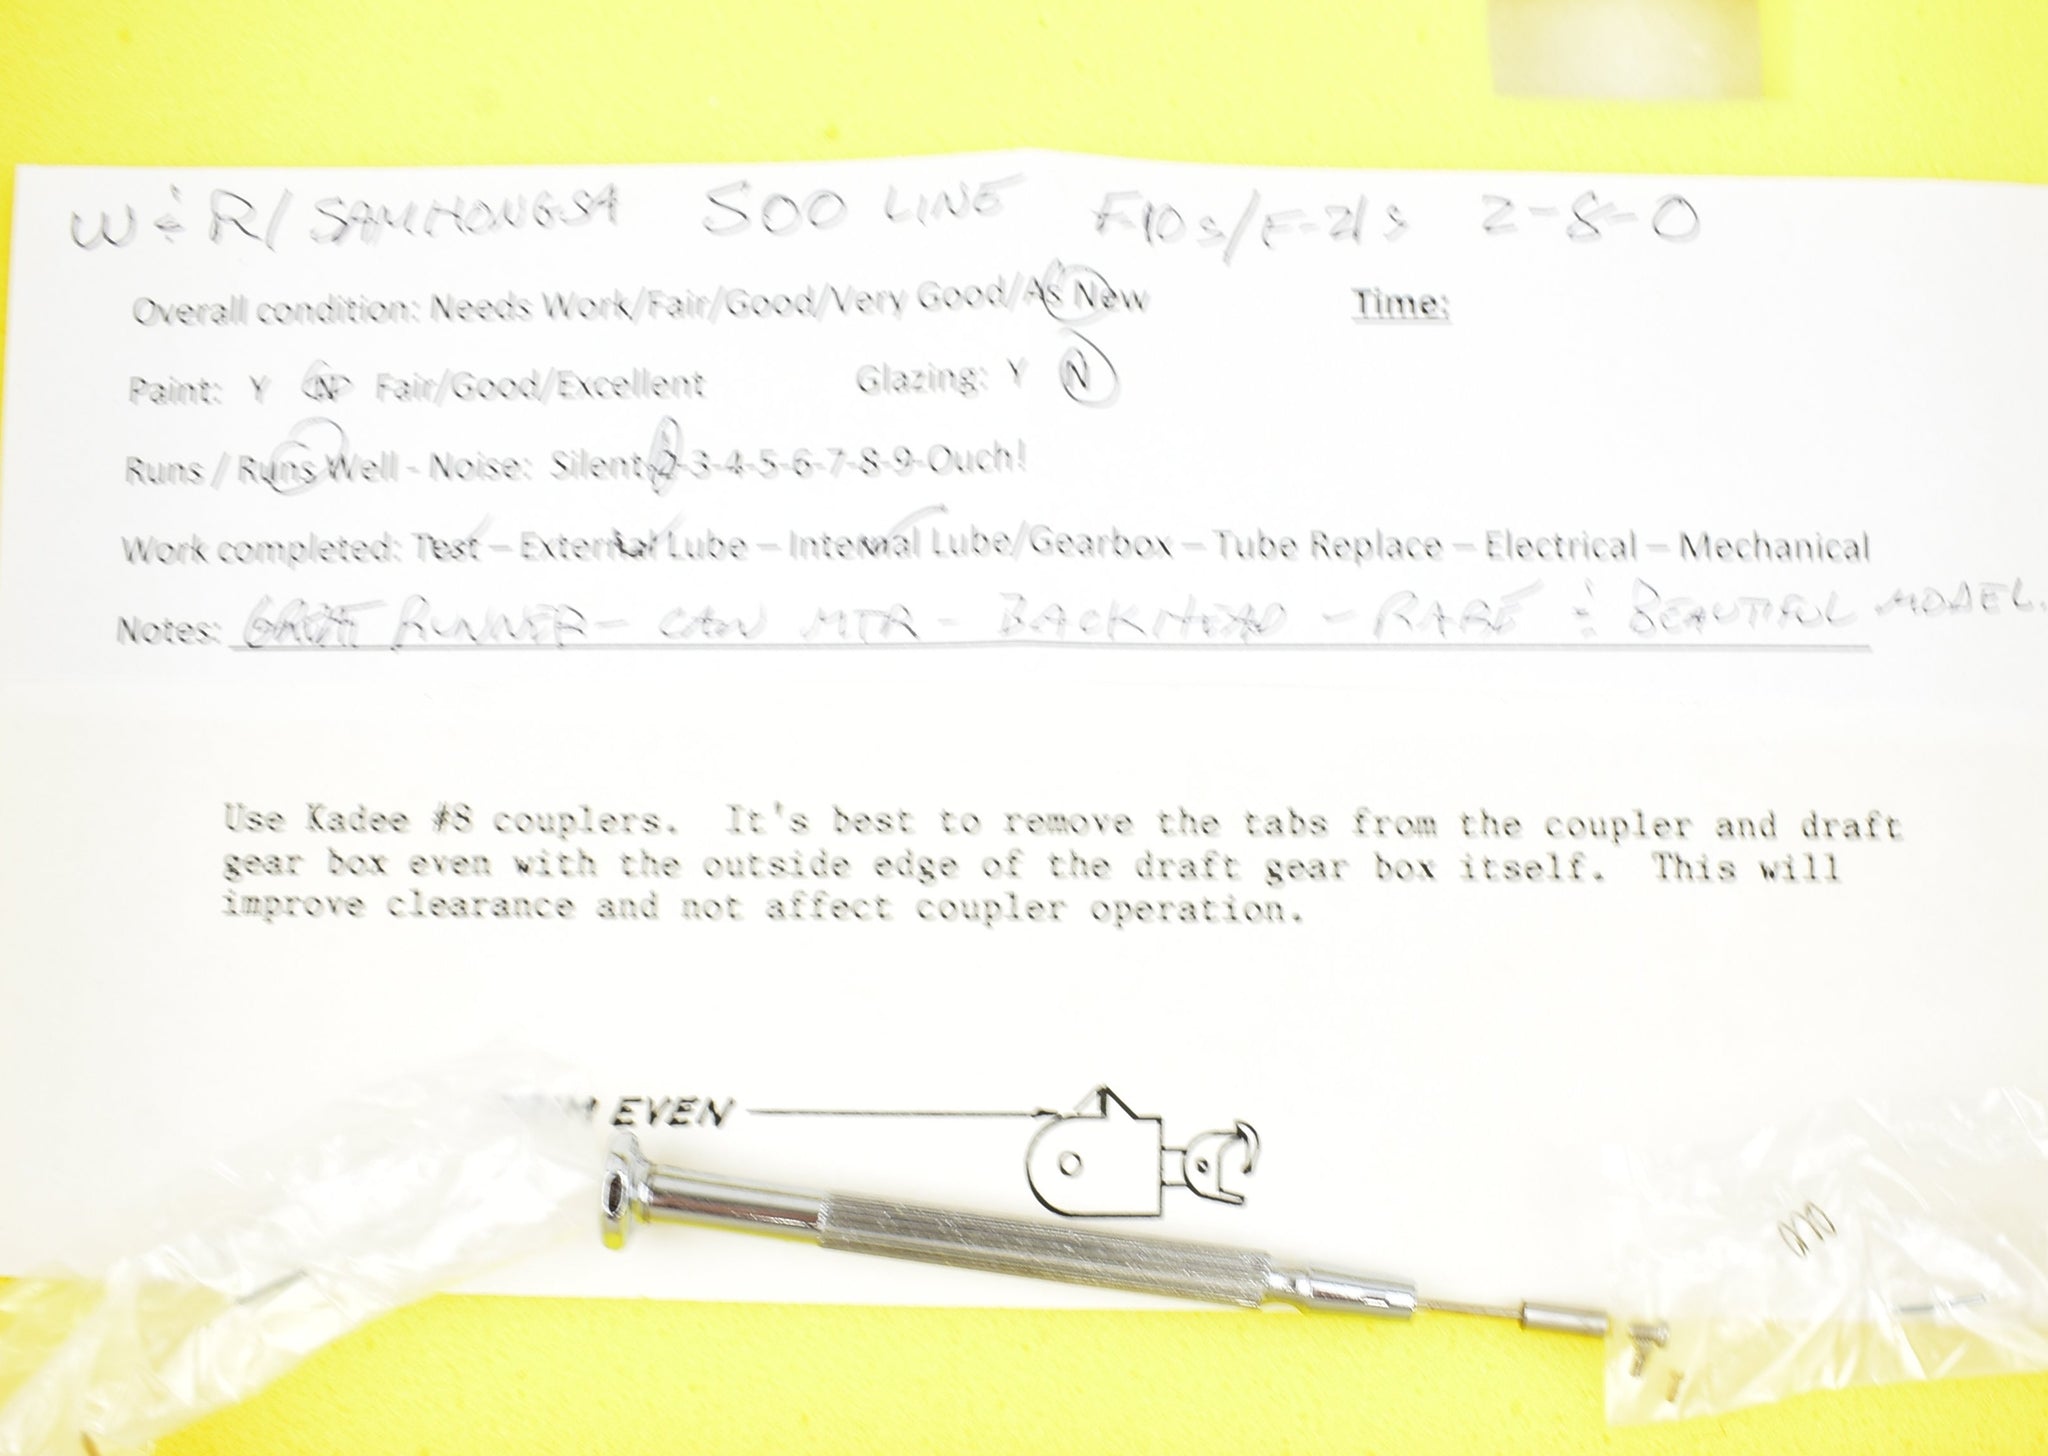 W & R/ SAMHONGSA SOO LINE F-10s/F-21s 2-8-0
Overall condition: Needs Work/Fair/Good/Very Good/As New
Time:
Paint: Y N Fair/Good/Excellent Glazing: Y N
Runs / Runs Well - Noise: Silent-2-3-4-5-6-7-8-9-Ouch!
Work completed: Test – External Lube – Internal Lube/Gearbox – Tube Replace – Electrical – Mechanical
Notes: GREAT RUNNER - CAN MTR - BACKHEAD - RARE & BEAUTIFUL MODEL.
Use Kadee #8 couplers. It's best to remove the tabs from the coupler and draft
gear box even with the outside edge of the draft gear box itself. This will
improve clearance and not affect coupler operation.
EVEN